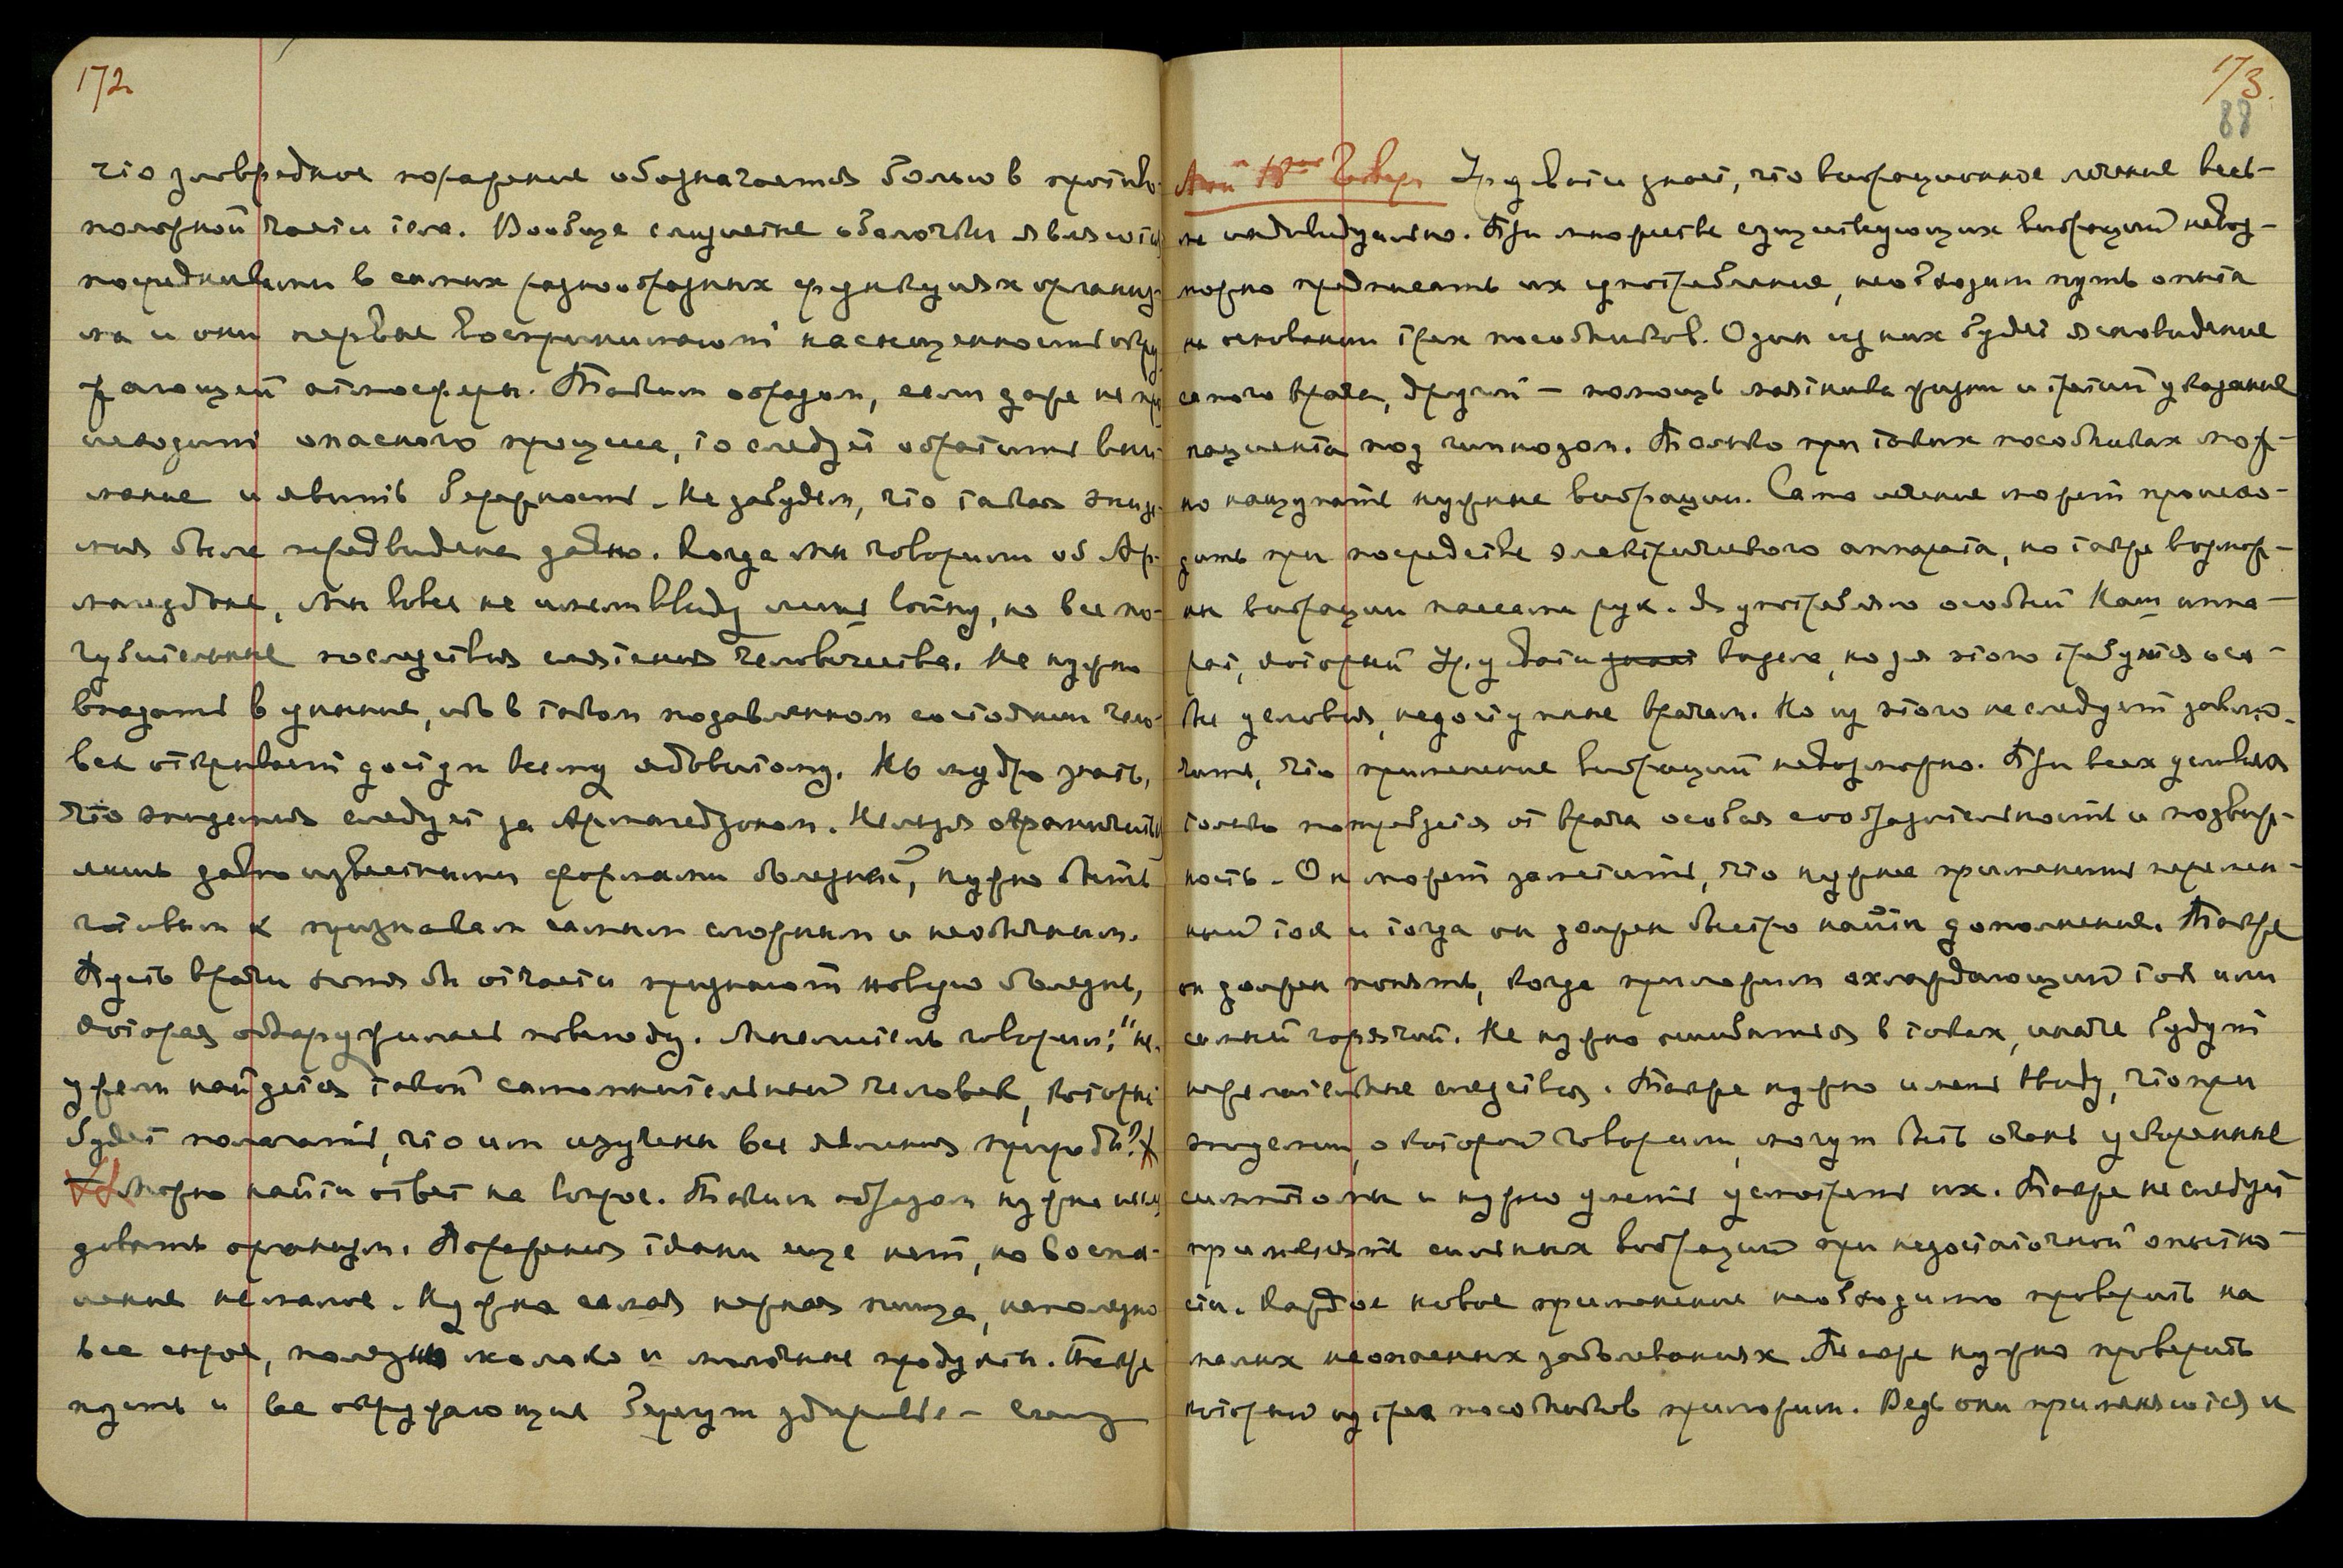 172
что зловредное поражение обозначается больше в противо-
положной части тела. Вообще слизистые оболочки являются
посредниками в самых разнообразных функциях организ-
ма и они первые воспринимают насыщенность окру-
жающей атмосферы. Таким образом, если даже не про-
исходит опасного процесса, то следует обратить вни-
мание и явить бережность. Не забудем, что такая эпиде-
мия была предвидена давно. Когда мы говорили об Ар-
магеддоне, мы вовсе не имели ввиду лишь войну, но все по-
губительные последствия смятения человечества. Не нужно
впадать в уныние, ибо в таком подавленном состоянии чело-
век открывает доступ всему ядовитому. Но мудро знать,
что эпидемия следует за Армагеддоном. Нельзя ограничить
лишь давно известными формами болезней, нужно быть
готовым к признакам самым сложным и необычным.
Пусть врачи хотя бы отчасти признают новую болезнь,
которая обнаруживает повсюду. Мыслитель говорил: "Не-
ужели найдется такой самомнительный человек, который
будет полагать, что им изучены все явления природы?"
Можно найти ответ на вопрос. Таким образом нужно иссле-
довать организм. Поражения ткани еще нет, но воспа-
ление немалое. Нужна самая нежная пища, неполезно
все сырое, полезно молоко и молочные продукты. Также
пусть и все окружающие берегут здоровье –
173.
88
Урусвати знает, что вибрационное лечение весь-
ма индивидуально. При множестве существующих вибраций невоз-
можно предписать их употребление, необходим путь опыта
на основании трех пособников. Один из них будет ясновидение
самого врача, другой – помощь маятника жизни и третий указание
пациента под гипнозом. Только при таких пособниках мож-
но нащупать нужные вибрации. Само лечение может происхо-
дить при посредстве электрического аппарата, но также возмож-
ны вибрации пассами рук. Я употребляю особый Наш аппа-
рат, который Урусвати знает видела, но для этого требуются осо-
бые условия, недоступные врачам. Но из этого не следует заклю-
чить, что применение вибраций невозможно. При всех условиях
только потребуется от врача особая сообразительность и подвиж-
ность. Он может заметить, что нужнее применить перемен-
ный ток и тогда он должен быстро найти дополнение. Также
он должен понять, когда приложим охлаждающий ток или
самый горячий. Не нужно ошибаться в токах, иначе будут
нежелательные следствия. Также нужно иметь ввиду, что при
эпидемии, о которой говорили, могут быть очень ускоренные
симптомы и нужно уметь усмотреть их. Также не следует
применять сильных вибраций при недостаточной опытно-
сти. Каждое новое применение необходимо проверить на
малых неопасных заболеваниях. Также нужно проверить
который из трех пособников приложим. Ведь они применяются и